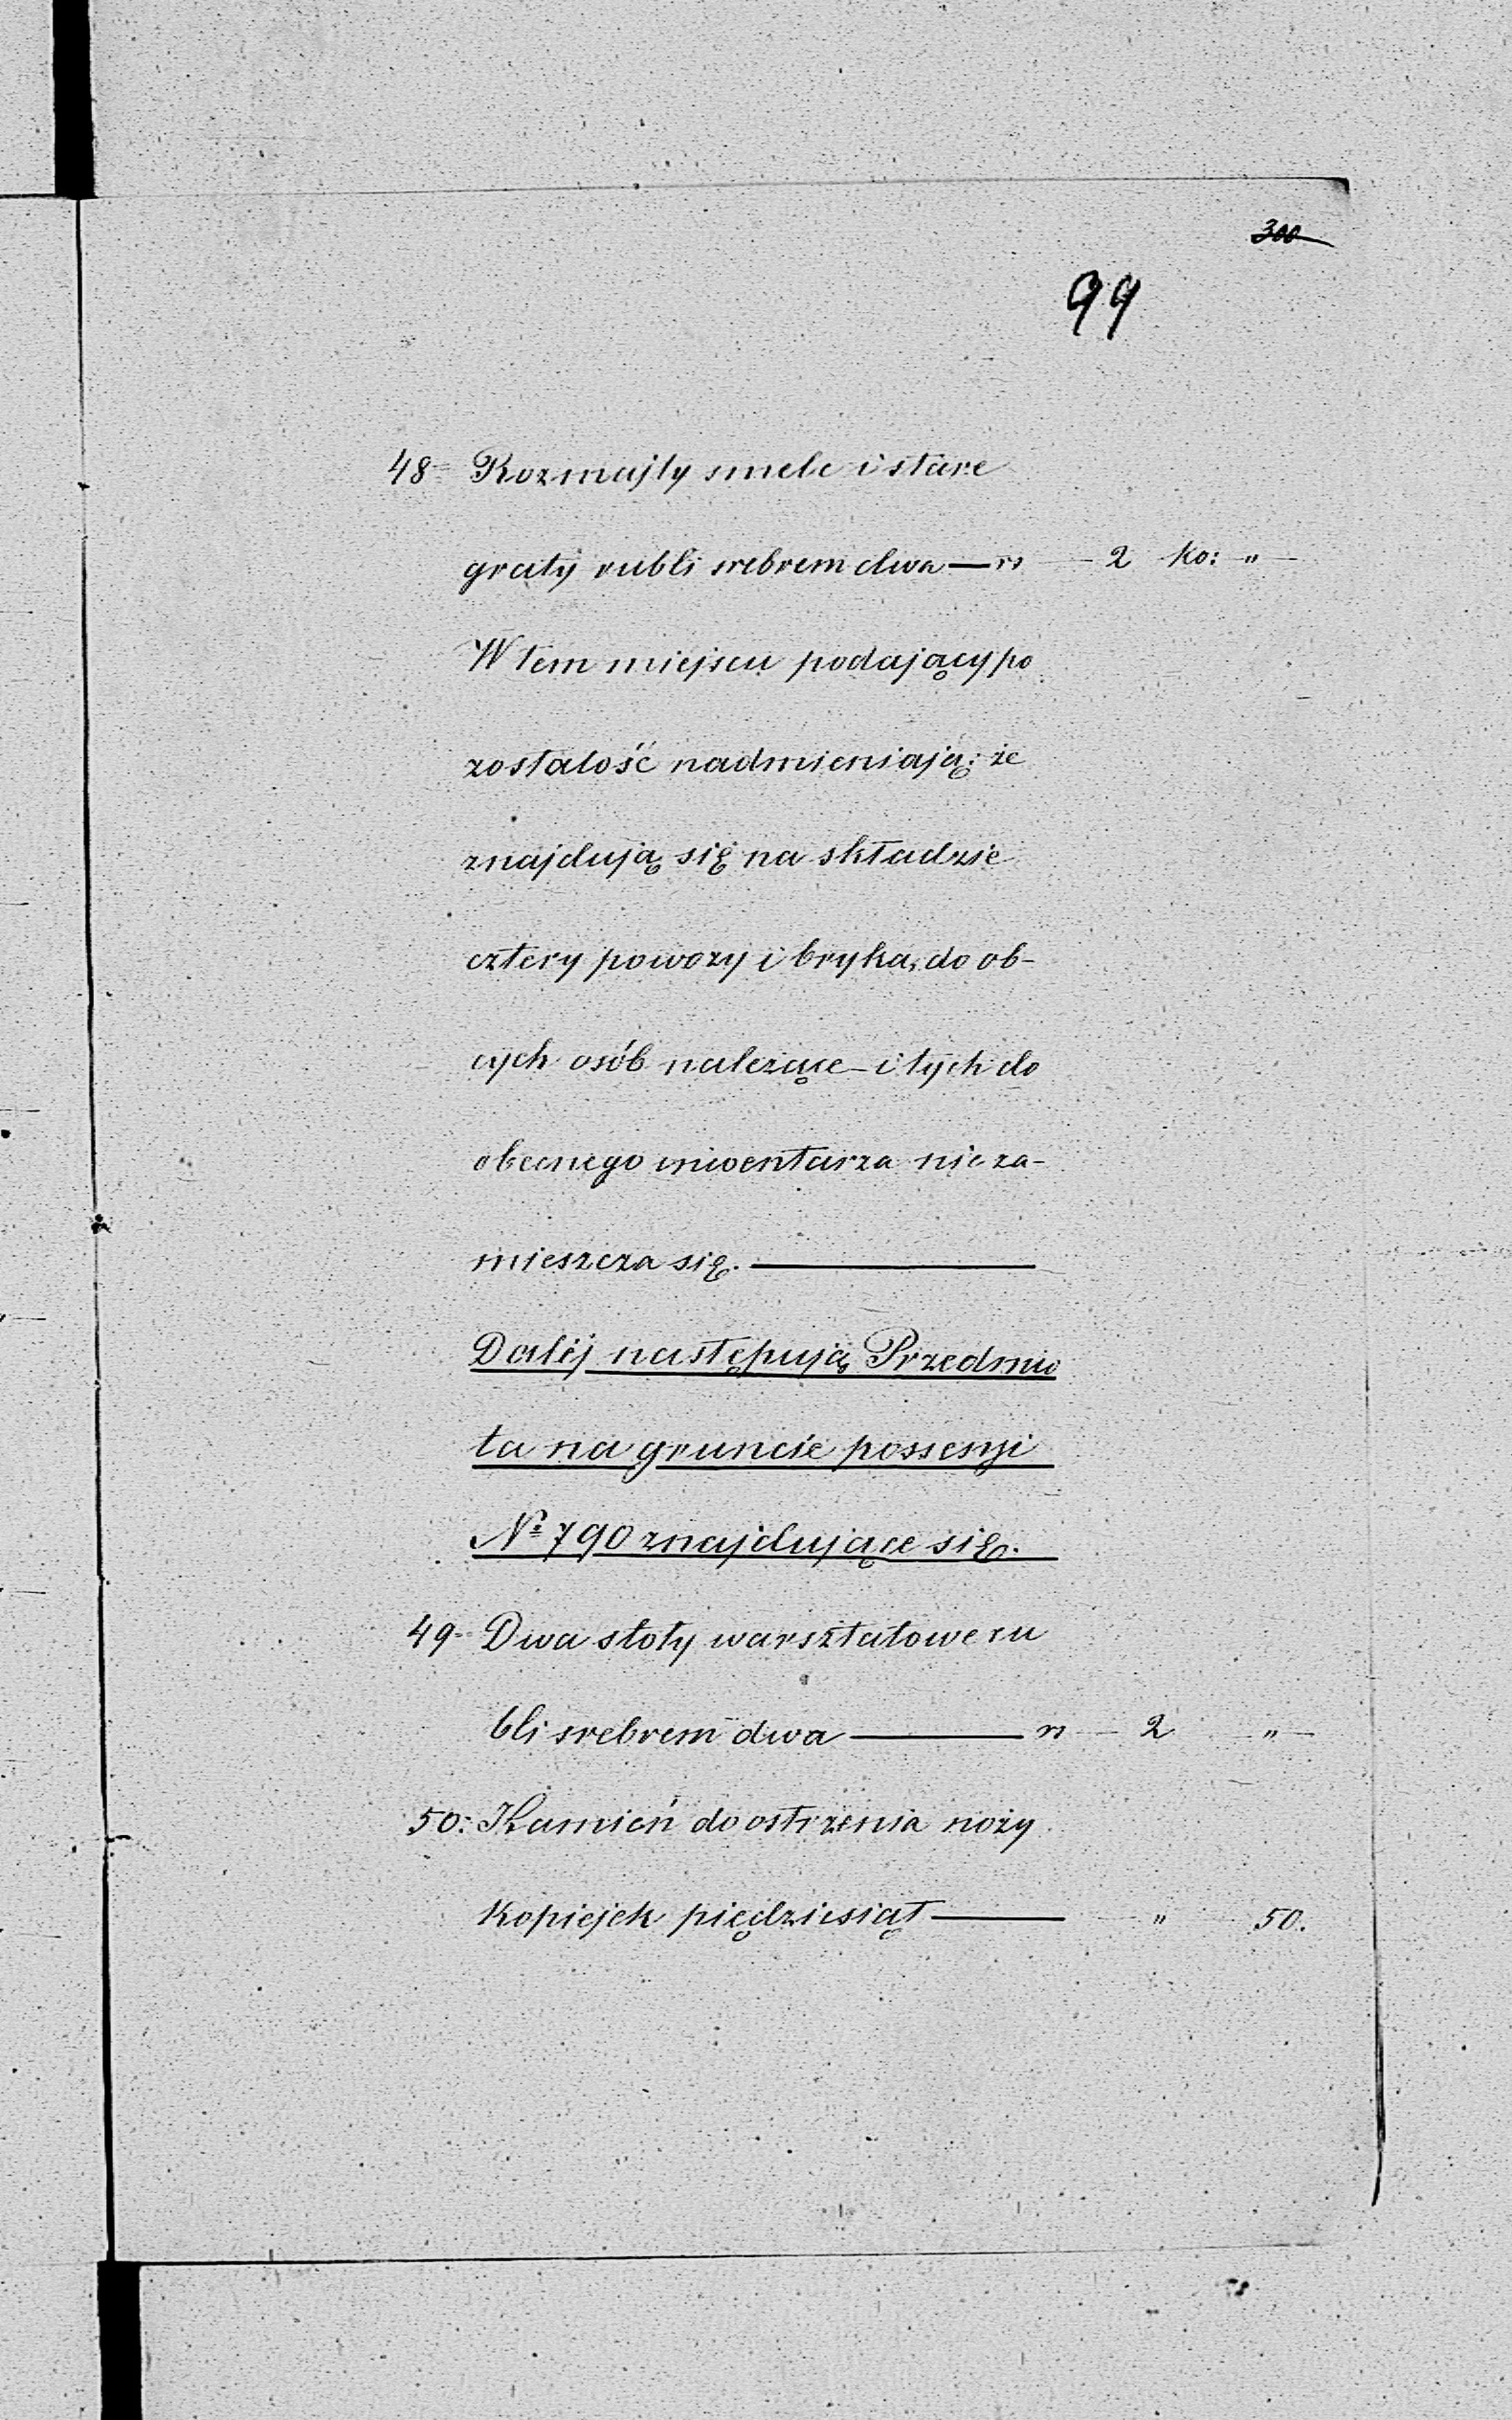 300
99
48= Rozmajty smelc i stare
graty rubli srebrem dwa — rs — 2 ko: „ —
W tem miejscu podający po
zostałość nadmieniają: że
znajdują się na składzie
cztery powozy i bryka, do ob-
cych osób należące – i tych do
obecnego inwentarza nie za-
mieszcza się. —
Dalej następują Przedmio
ta na gruncie possesyi
№ 790 znajdujące się.
49= Dwa stoły warsztatowe ru
bli srebrem dwa — rs — 2 „ —
50: Kamień do ostrzenia noży
Kopiejek piędziesiąt — „ 50.